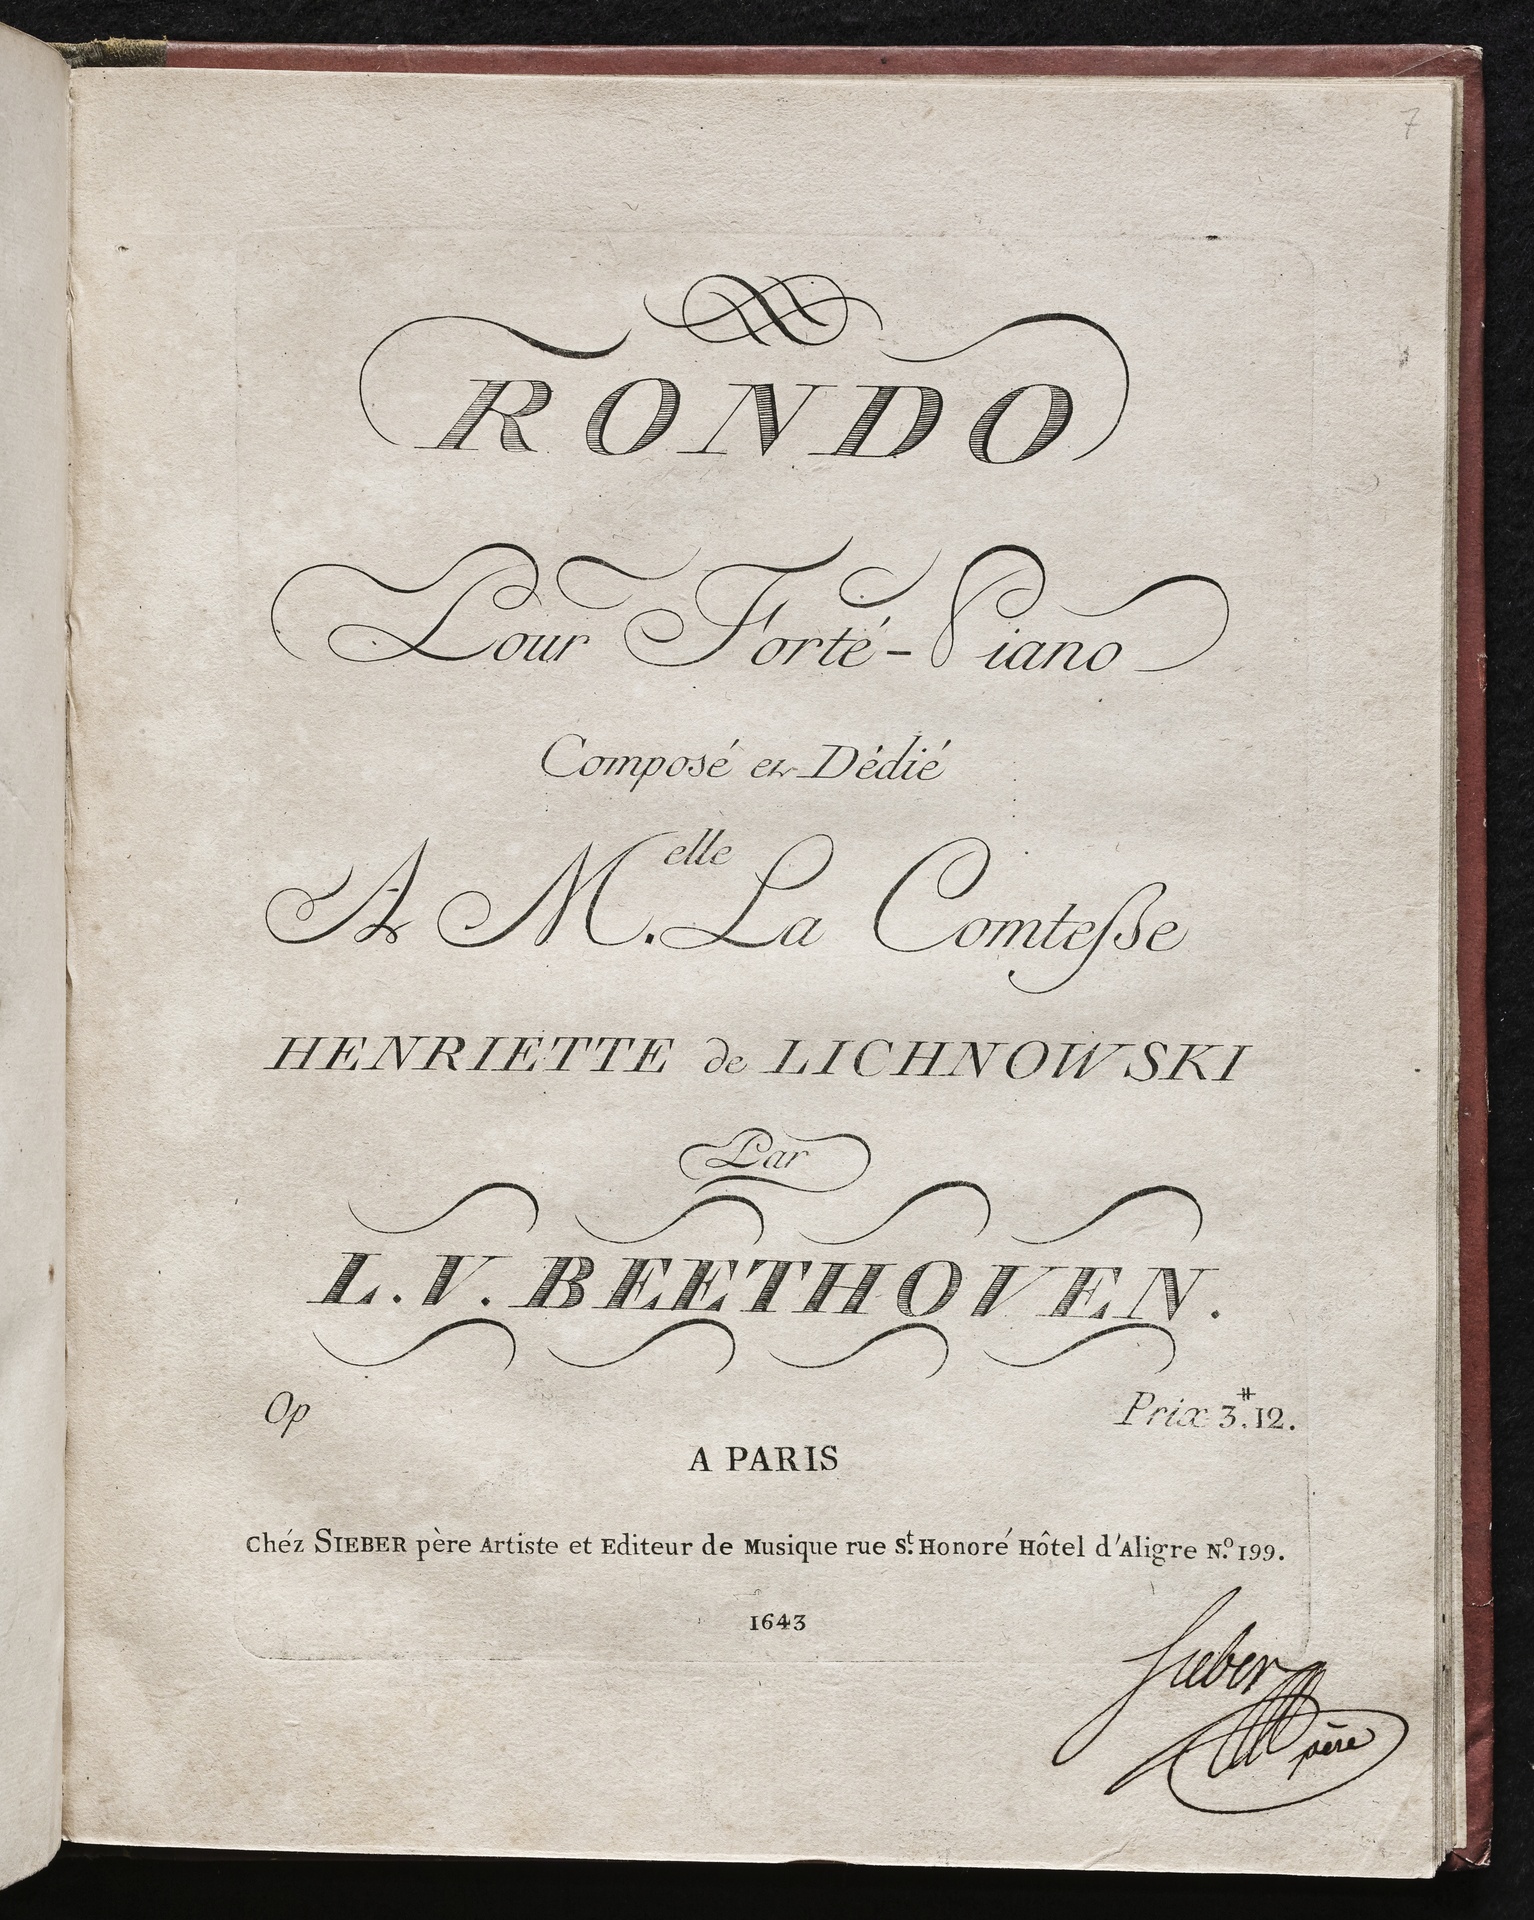 7
RONDO
Pour Forté-Piano
Composé et Dédié
A M.elle La Comteſse
HENRIETTE de LICHNOWSKI
Par
L. V. BEETHOVEN.
Op Prix 3.# 12.
A PARIS
Chéz SIEBER père Artiste et Editeur de Musique rue St. Honoré Hôtel d'Aligre N.º 199.
1643
Sieber
père